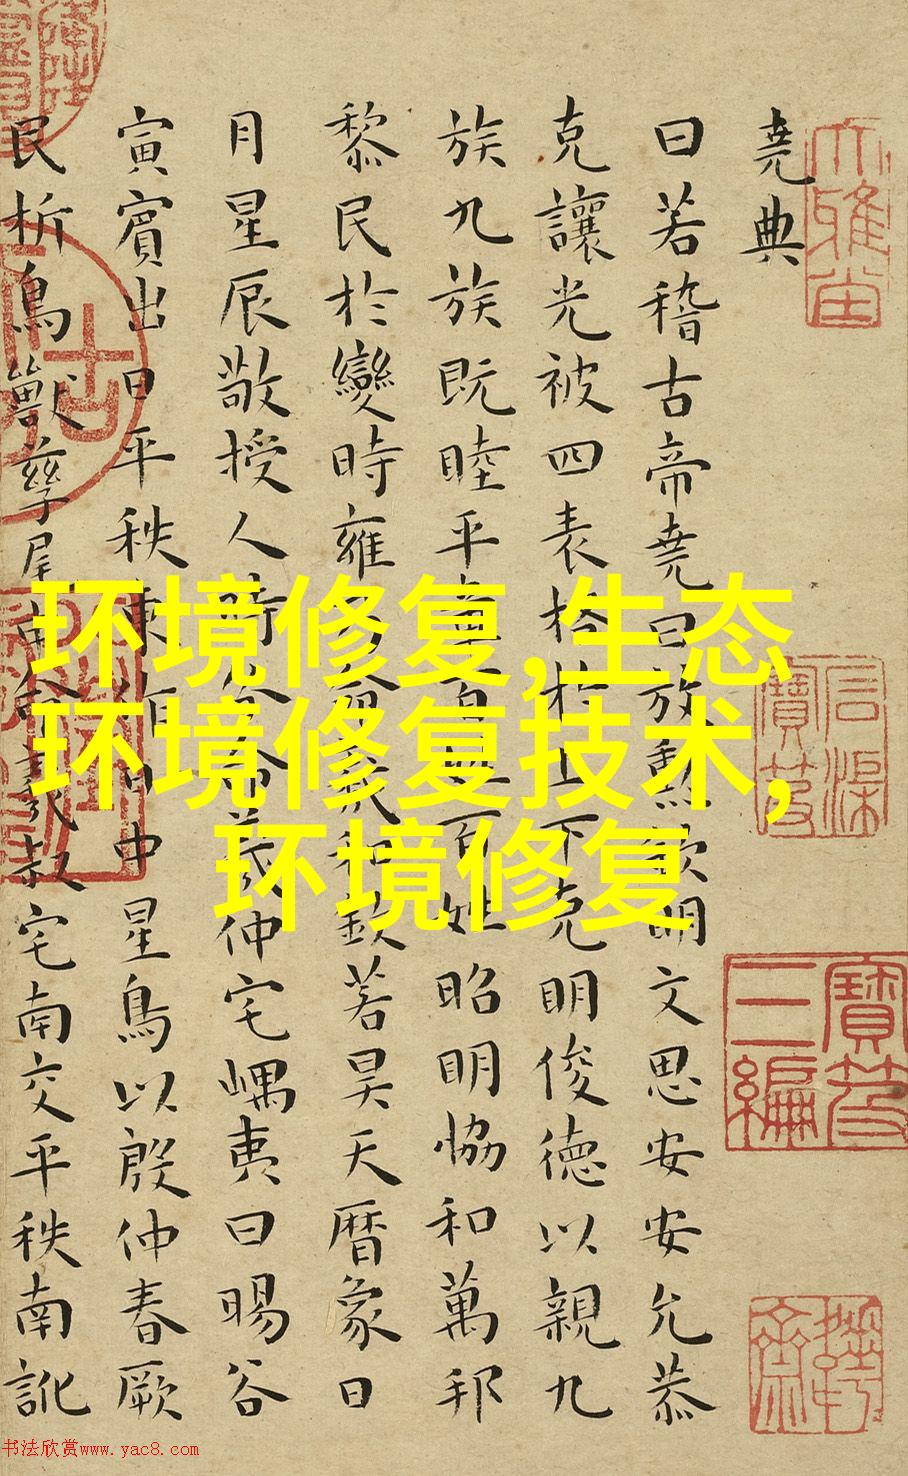 堯典
曰若稽古帝堯曰放勲欽明文思安安允恭
克讓光被四表格於上下克明俊德以親九
族九族既睦平章百姓百姓昭明協和萬邦
黎民於變時雍乃命羲和欽若昊天曆象日
月星辰敬授人時分命羲仲宅嵎夷曰暘谷
寅賓出日平秩東作日中星鳥以殷仲春厥
民析鳥獸孳尾申命羲叔宅南交平秩南訛
环境修复,生态
环境修复技术,
环境修复
寶笈三編
书法欣赏www.yac8.com